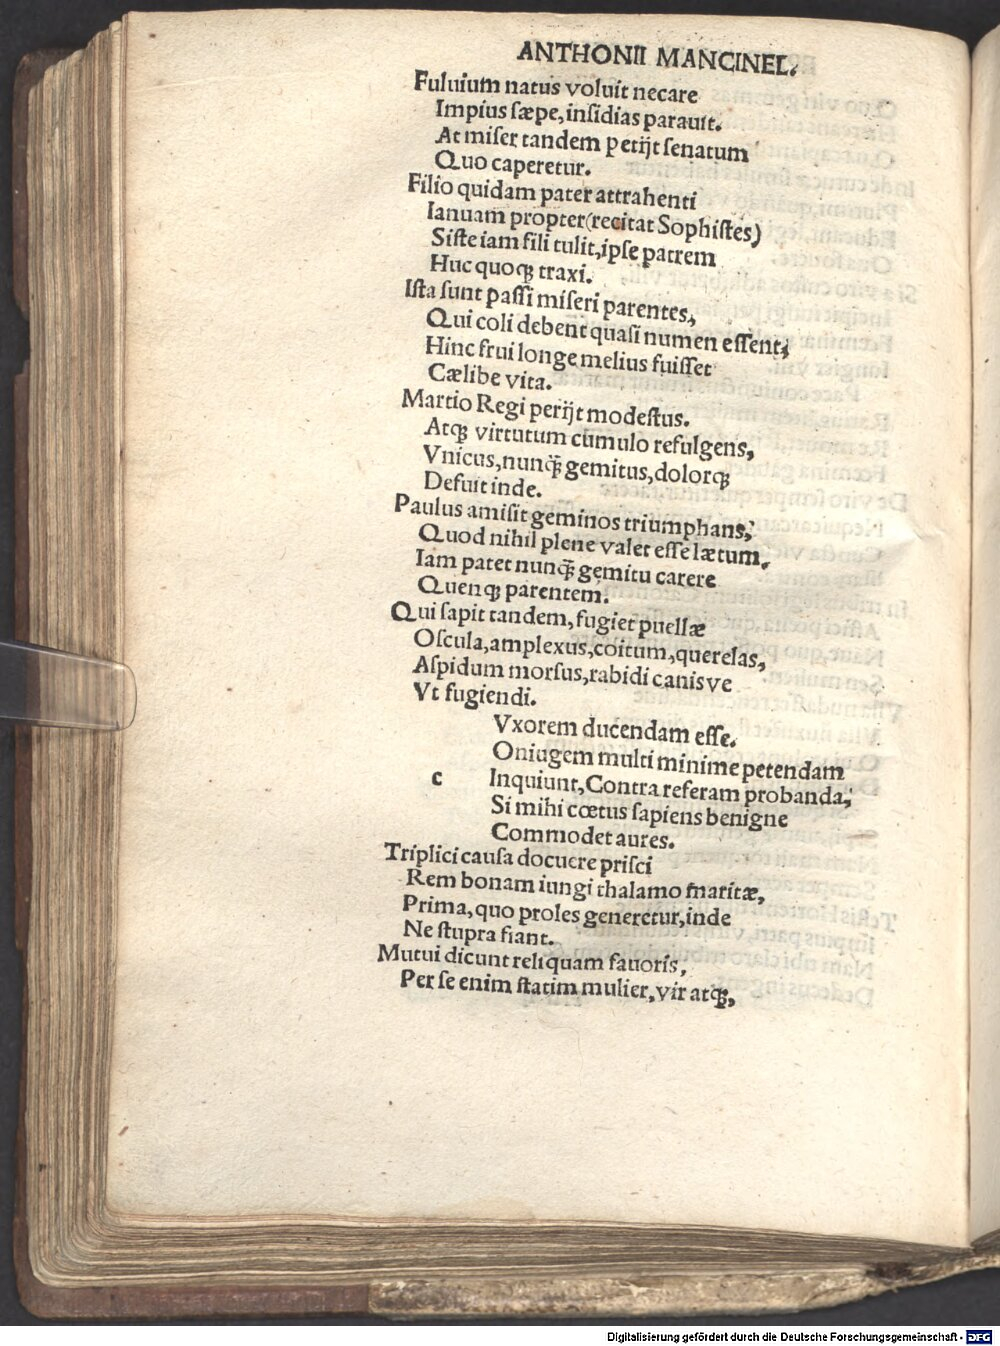 ANTHONII MANCINEL.
Fuluium natus voluit necare
Impius sæpe, insidias parauit.
At miser tandem petijt senatum
Quo caperetur.
Filio quidam pater attrahenti
Ianuam propter (recitat Sophistes)
Siste iam fili tulit, ipse patrem
Huc quoqꝫ traxi.
Ista sunt passi miseri parentes,
Qui coli debent quasi numen essent,
Hinc frui longe melius fuisset
Cælibe vita.
Martio Regi perijt modestus.
Atqꝫ virtutum cumulo refulgens,
Vnicus, nunq̃ gemitus, dolorqꝫ
Defuit inde.
Paulus amisit geminos triumphans,
Quod nihil plene valet esse lætum,
Iam patet nunq̃ gemitu carere
Quenqꝫ parentem.
Qui sapit tandem, fugiet puellæ
Oscula, amplexus, coitum, querelas,
Aspidum morsus, rabidi canis ve
Vt fugiendi.
Vxorem ducendam esse.
Oniugem multi minime petendam
c Inquiunt, Contra referam probanda,
Si mihi cœtus sapiens benigne
Commodet aures.
Triplici causa docuere prisci
Rem bonam iungi thalamo maritæ,
Prima, quo proles generetur, inde
Ne stupra fiant.
Mutui dicunt reliquam fauoris,
Per se enim statim mulier, vir atqꝫ,
Digitalisierung gefördert durch die Deutsche Forschungsgemeinschaft - DFG